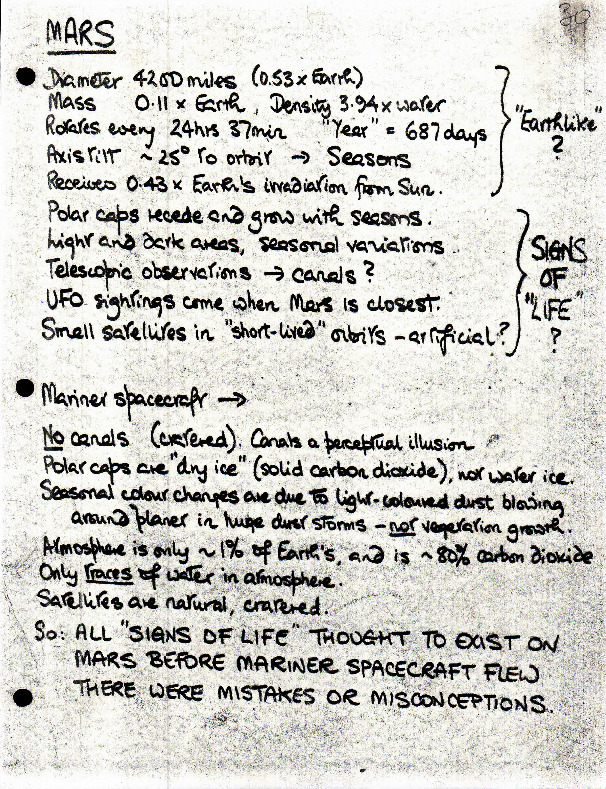 30
MARS
Diameter 4200 miles (0.53 x Earth)
Mass 0.11 x Earth, Density 3.94 x water
Rotates every 24hrs 37min "Year" = 687 days
Axis tilt ~25° to orbit → Seasons
Receives 0.43 x Earth's irradiation from Sun.
"Earthlike"
?
Polar caps recede and grow with seasons.
Light and dark areas, seasonal variations.
Telescopic observations → canals?
UFO sightings come when Mars is closest.
Small satellites in "short-lived" orbits - artificial?
SIGNS
OF
"LIFE"
?
Mariner spacecraft →
No canals (cratered). Canals a perceptual illusion
Polar caps are "dry ice" (solid carbon dioxide), not water ice.
Seasonal colour changes are due to light-coloured dust blowing
around planet in huge dust storms - not vegetation growth.
Atmosphere is only ~1% of Earth's, and is ~80% carbon dioxide
Only traces of water in atmosphere.
Satellites are natural, cratered.
So: ALL "SIGNS OF LIFE" THOUGHT TO EXIST ON
MARS BEFORE MARINER SPACECRAFT FLEW
THERE WERE MISTAKES OR MISCONCEPTIONS.